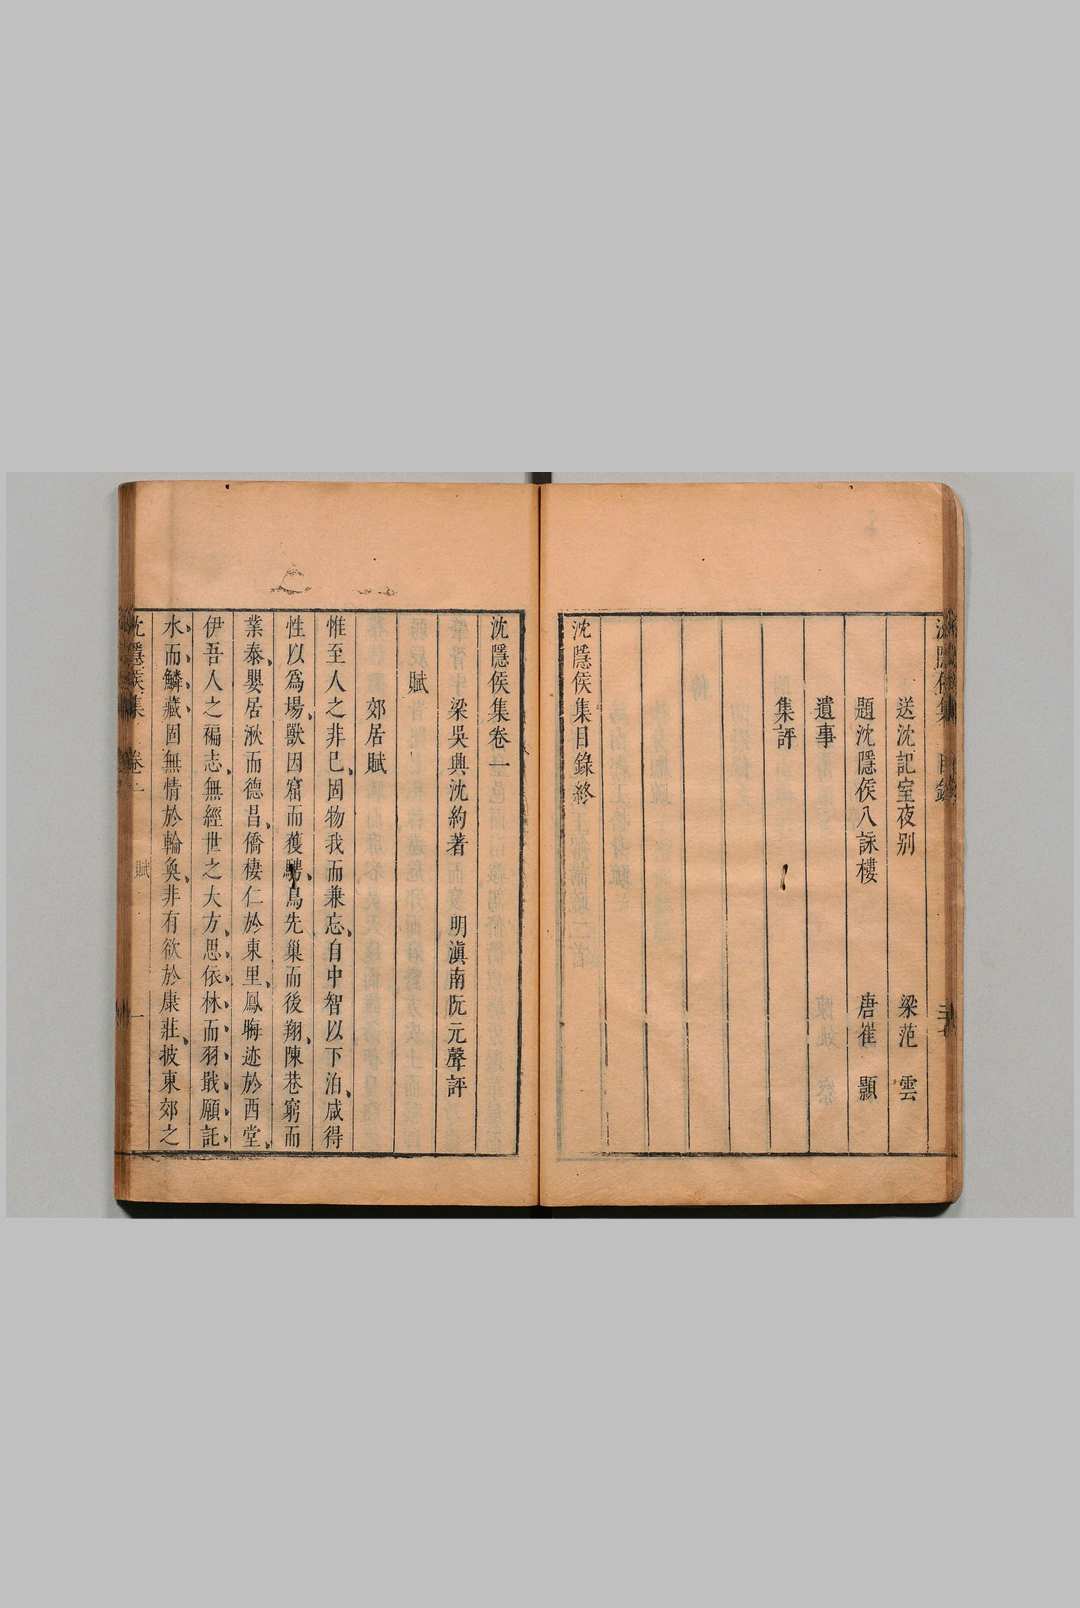 沈隱侯集 目錄
送沈記室夜别 梁范 雲
題沈隱侯八詠樓 唐崔 顥
遺事
集評
沈隱侯集目錄終
沈隱侯集卷一
梁吳興沈約著 明滇南阮元聲評
賦
郊居賦
惟至人之非已固物我而兼忘自中智以下洎咸得
性以爲場獸因窟而獲騁鳥先巢而後翔陳巷窮而
業泰嬰居湫而德昌僑棲仁於東里鳳晦迹於西堂
伊吾人之褊志無經世之大方思依林而羽戢願託
水而鱗藏固無情於輪奐非有欲於康莊披東郊之
沈隱侯集 卷一 賦 一